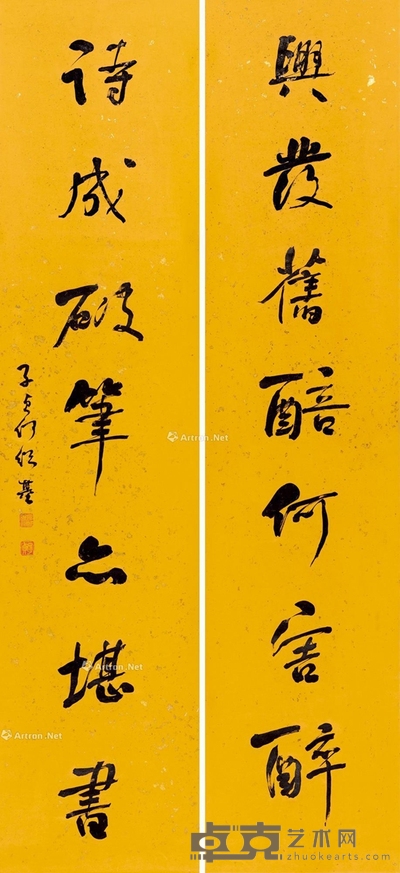 興發舊醅何害醉
詩成破筆亦堪書
子貞何紹基
Artron.Net
Artron.Net
Artron.Net
Artron.Net
卓克艺术网
zhuokearts.com